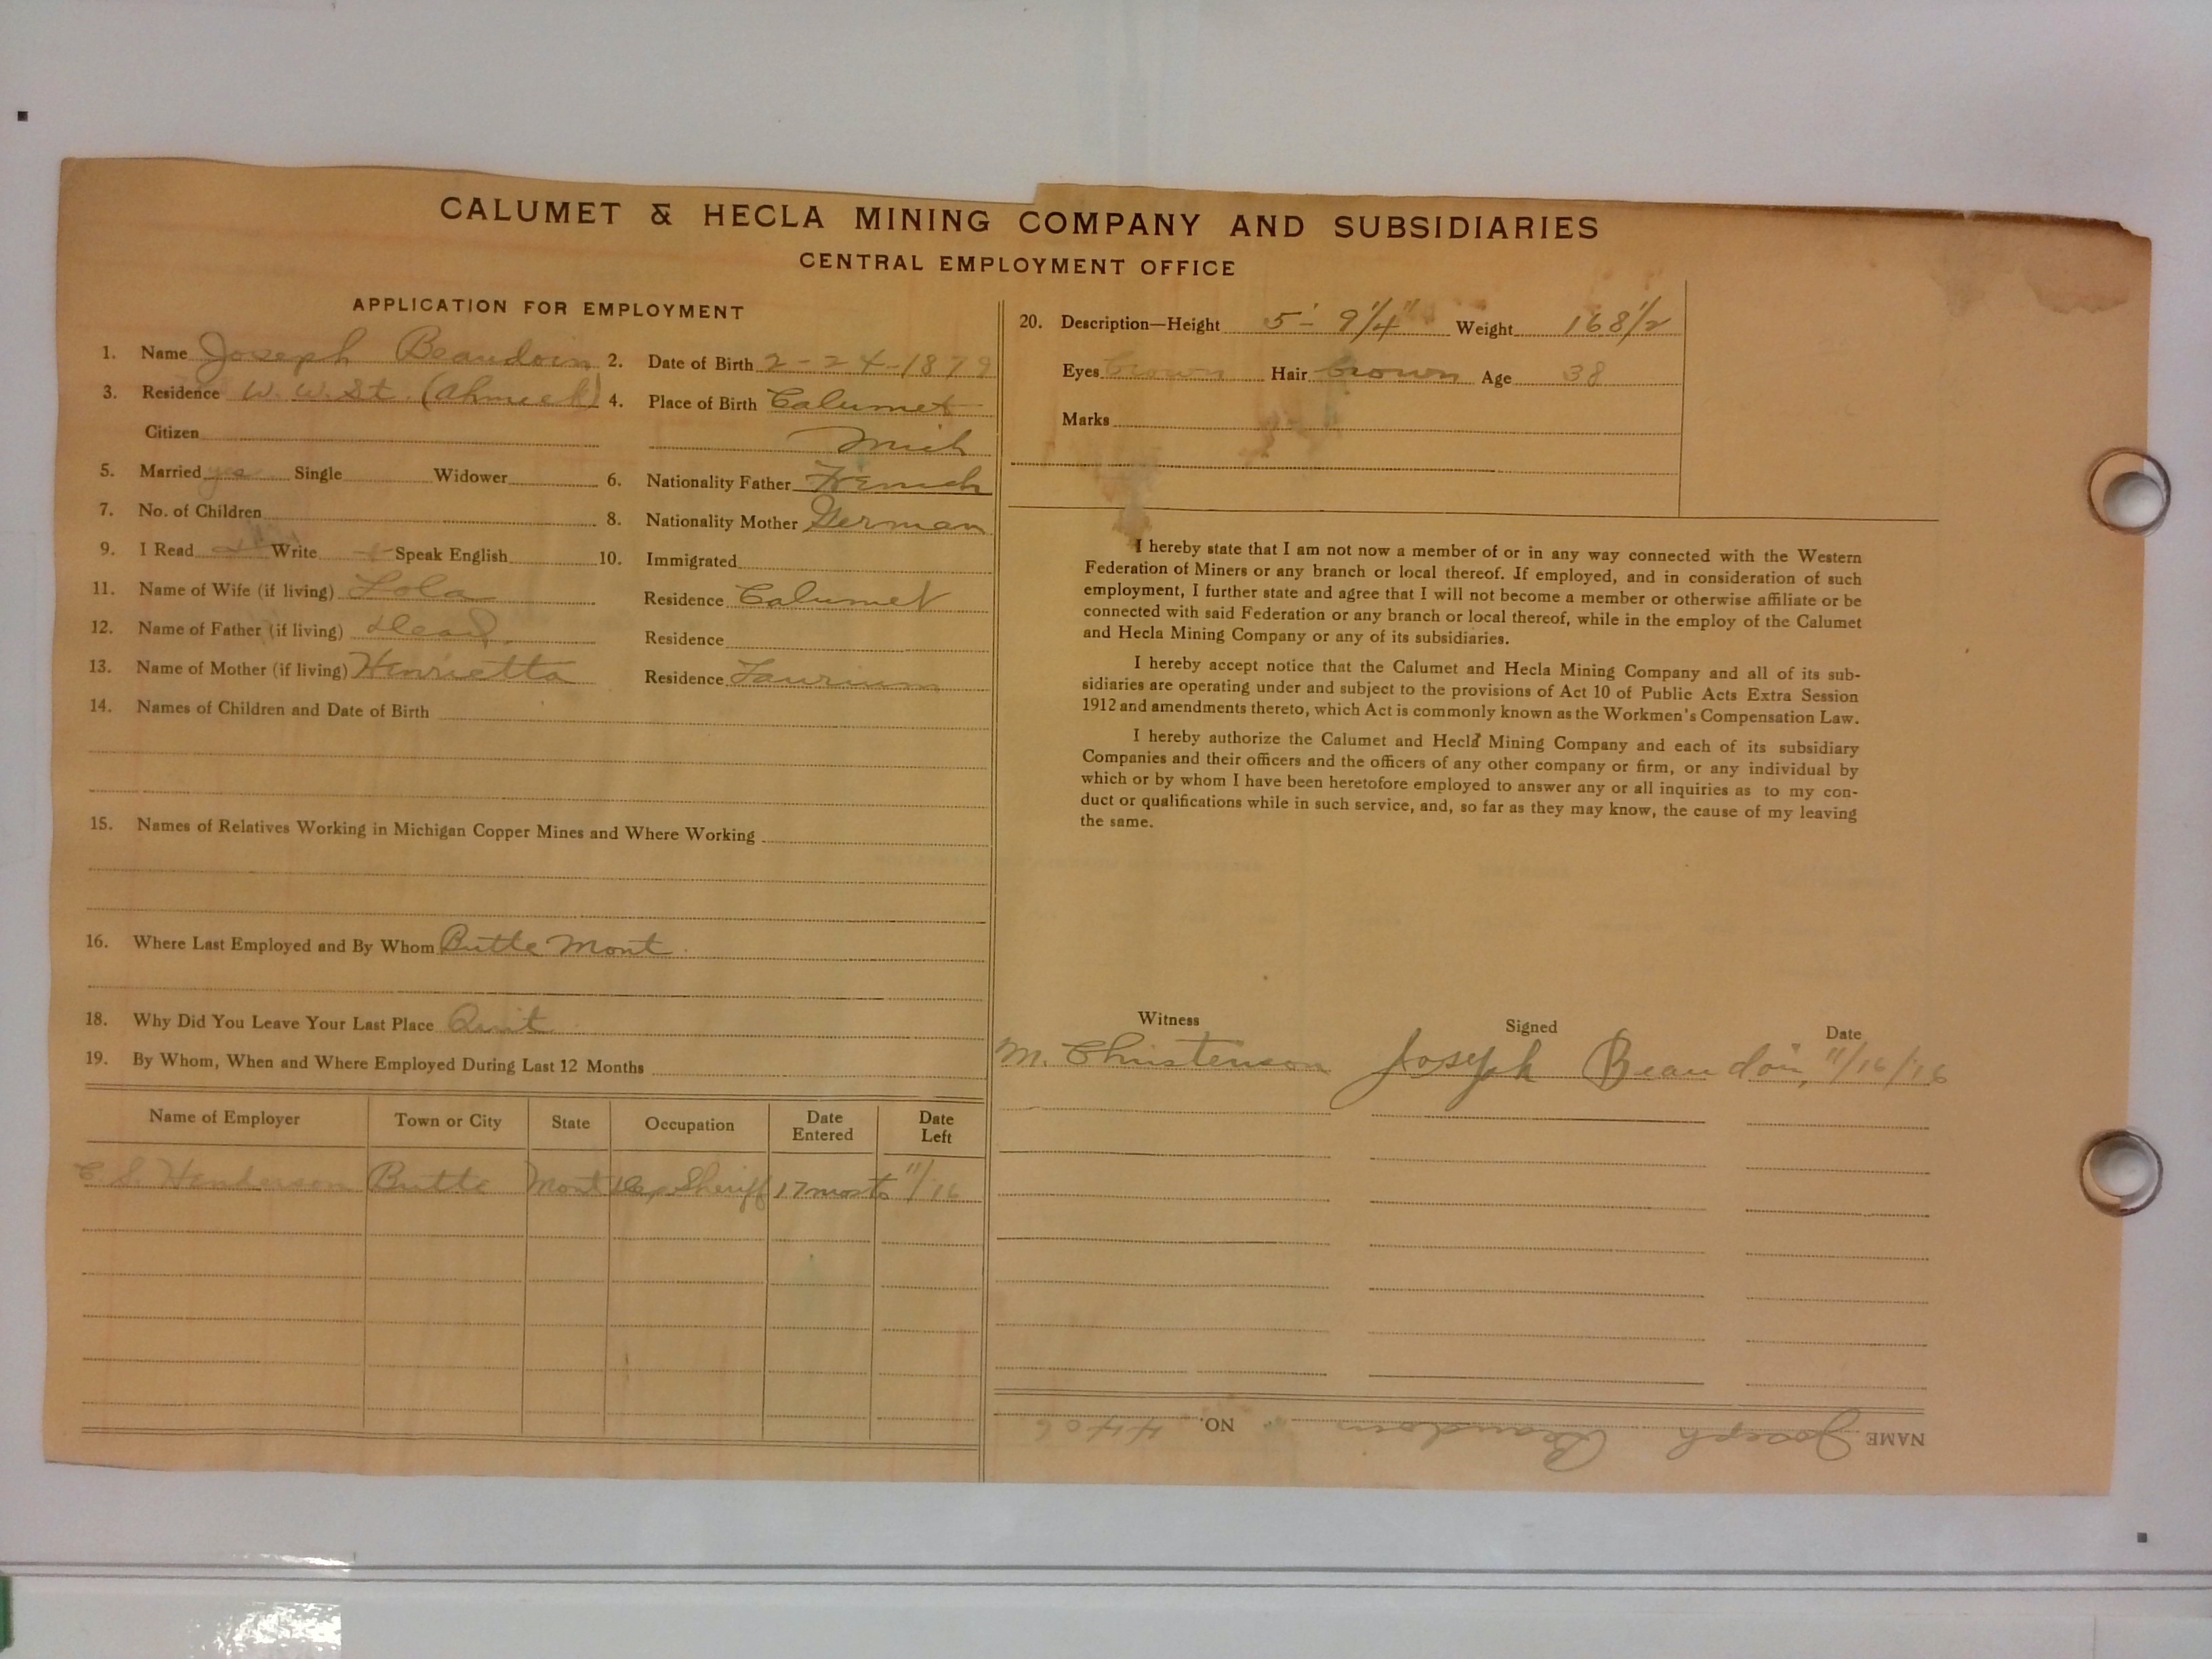 CALUMET & HECLA MINING COMPANY AND SUBSIDIARIES
CENTRAL EMPLOYMENT OFFICE
APPLICATION FOR EMPLOYMENT
1. Name Joseph Beaudoin 2. Date of Birth 2-24-1879
3. Residence W. W. St. (Ahmeek) 4. Place of Birth Calumet
Citizen Mich
5. Married yes Single Widower 6. Nationality Father French
7. No. of Children 8. Nationality Mother German
9. I Read Write Speak English 10. Immigrated
11. Name of Wife (if living) Lola Residence Calumet
12. Name of Father (if living) Dead Residence
13. Name of Mother (if living) Henrietta Residence Laurium
14. Names of Children and Date of Birth
15. Names of Relatives Working in Michigan Copper Mines and Where Working
16. Where Last Employed and By Whom Butte Mont
18. Why Did You Leave Your Last Place Quit
19. By Whom, When and Where Employed During Last 12 Months
Name of Employer Town or City State Occupation Date Entered Date Left
C S. Henderson Butte Mont Dep Sheriff 17 mos to 11/16
20. Description—Height 5'- 9 1/4" Weight 168 1/2
Eyes brown Hair brown Age 38
Marks
I hereby state that I am not now a member of or in any way connected with the Western
Federation of Miners or any branch or local thereof. If employed, and in consideration of such
employment, I further state and agree that I will not become a member or otherwise affiliate or be
connected with said Federation or any branch or local thereof, while in the employ of the Calumet
and Hecla Mining Company or any of its subsidiaries.
I hereby accept notice that the Calumet and Hecla Mining Company and all of its sub-
sidiaries are operating under and subject to the provisions of Act 10 of Public Acts Extra Session
1912 and amendments thereto, which Act is commonly known as the Workmen's Compensation Law.
I hereby authorize the Calumet and Hecla Mining Company and each of its subsidiary
Companies and their officers and the officers of any other company or firm, or any individual by
which or by whom I have been heretofore employed to answer any or all inquiries as to my con-
duct or qualifications while in such service, and, so far as they may know, the cause of my leaving
the same.
Witness Signed Date
M. Christenson Joseph Beaudoin, 11/16/16
NAME Joseph Beaudoin NO. 4406